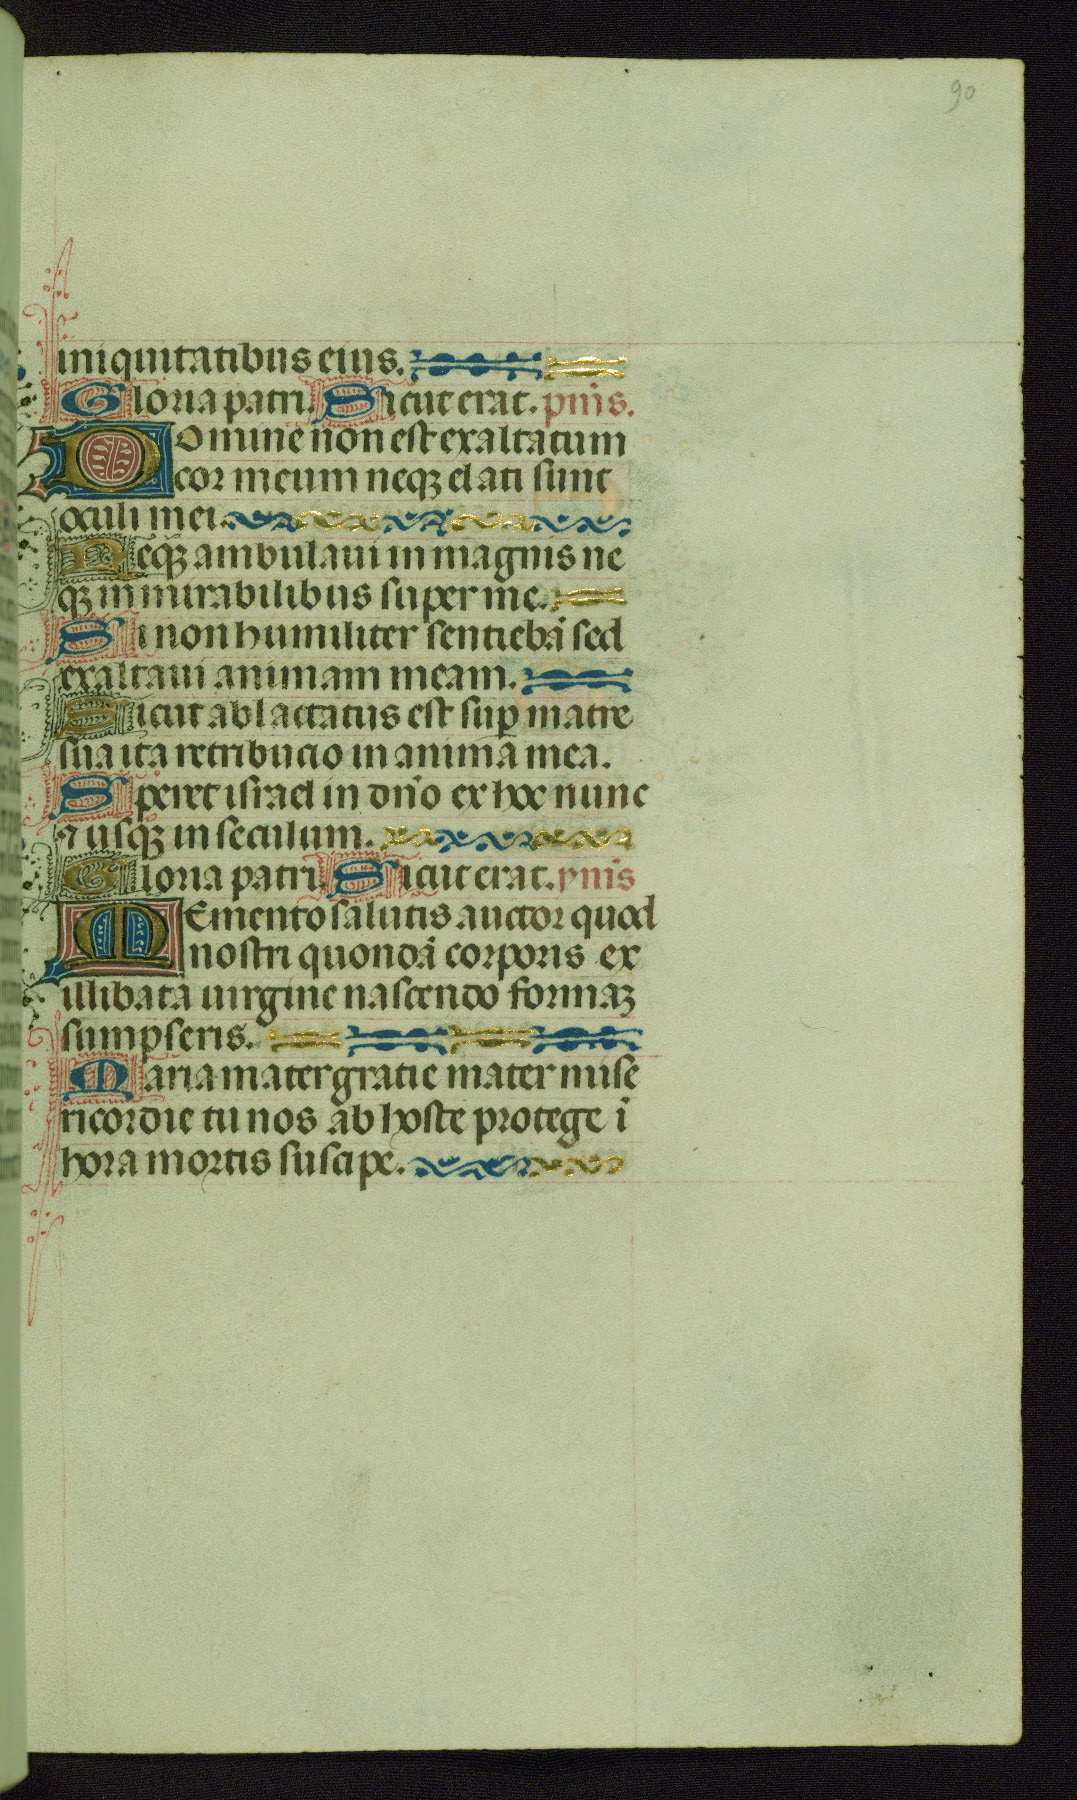 90
iniquitatibus eius.
Gloria patri. Sicut erat. pm̄s.
Domine non est exaltatum
cor meum neqꝫ elati sunt
oculi mei.
Neqꝫ ambulaui in magnis ne
qꝫ in mirabilibus super me.
Si non humiliter sentiebā sed
exaltaui animam meam.
Sicut ablactatus est suꝑ matre
sua ita retribucio in anima mea.
Speret israel in dn̄o ex hoc nunc
⁊ usqꝫ in seculum.
Gloria patri. Sicut erat. yms
Memento salutis auctor quod
nostri quondā corporis ex
illibata uirgine nascendo formaꝫ
sumpseris.
Maria mater gratie mater mise
ricordie tu nos ab hoste protege ī
hora mortis suscipe.